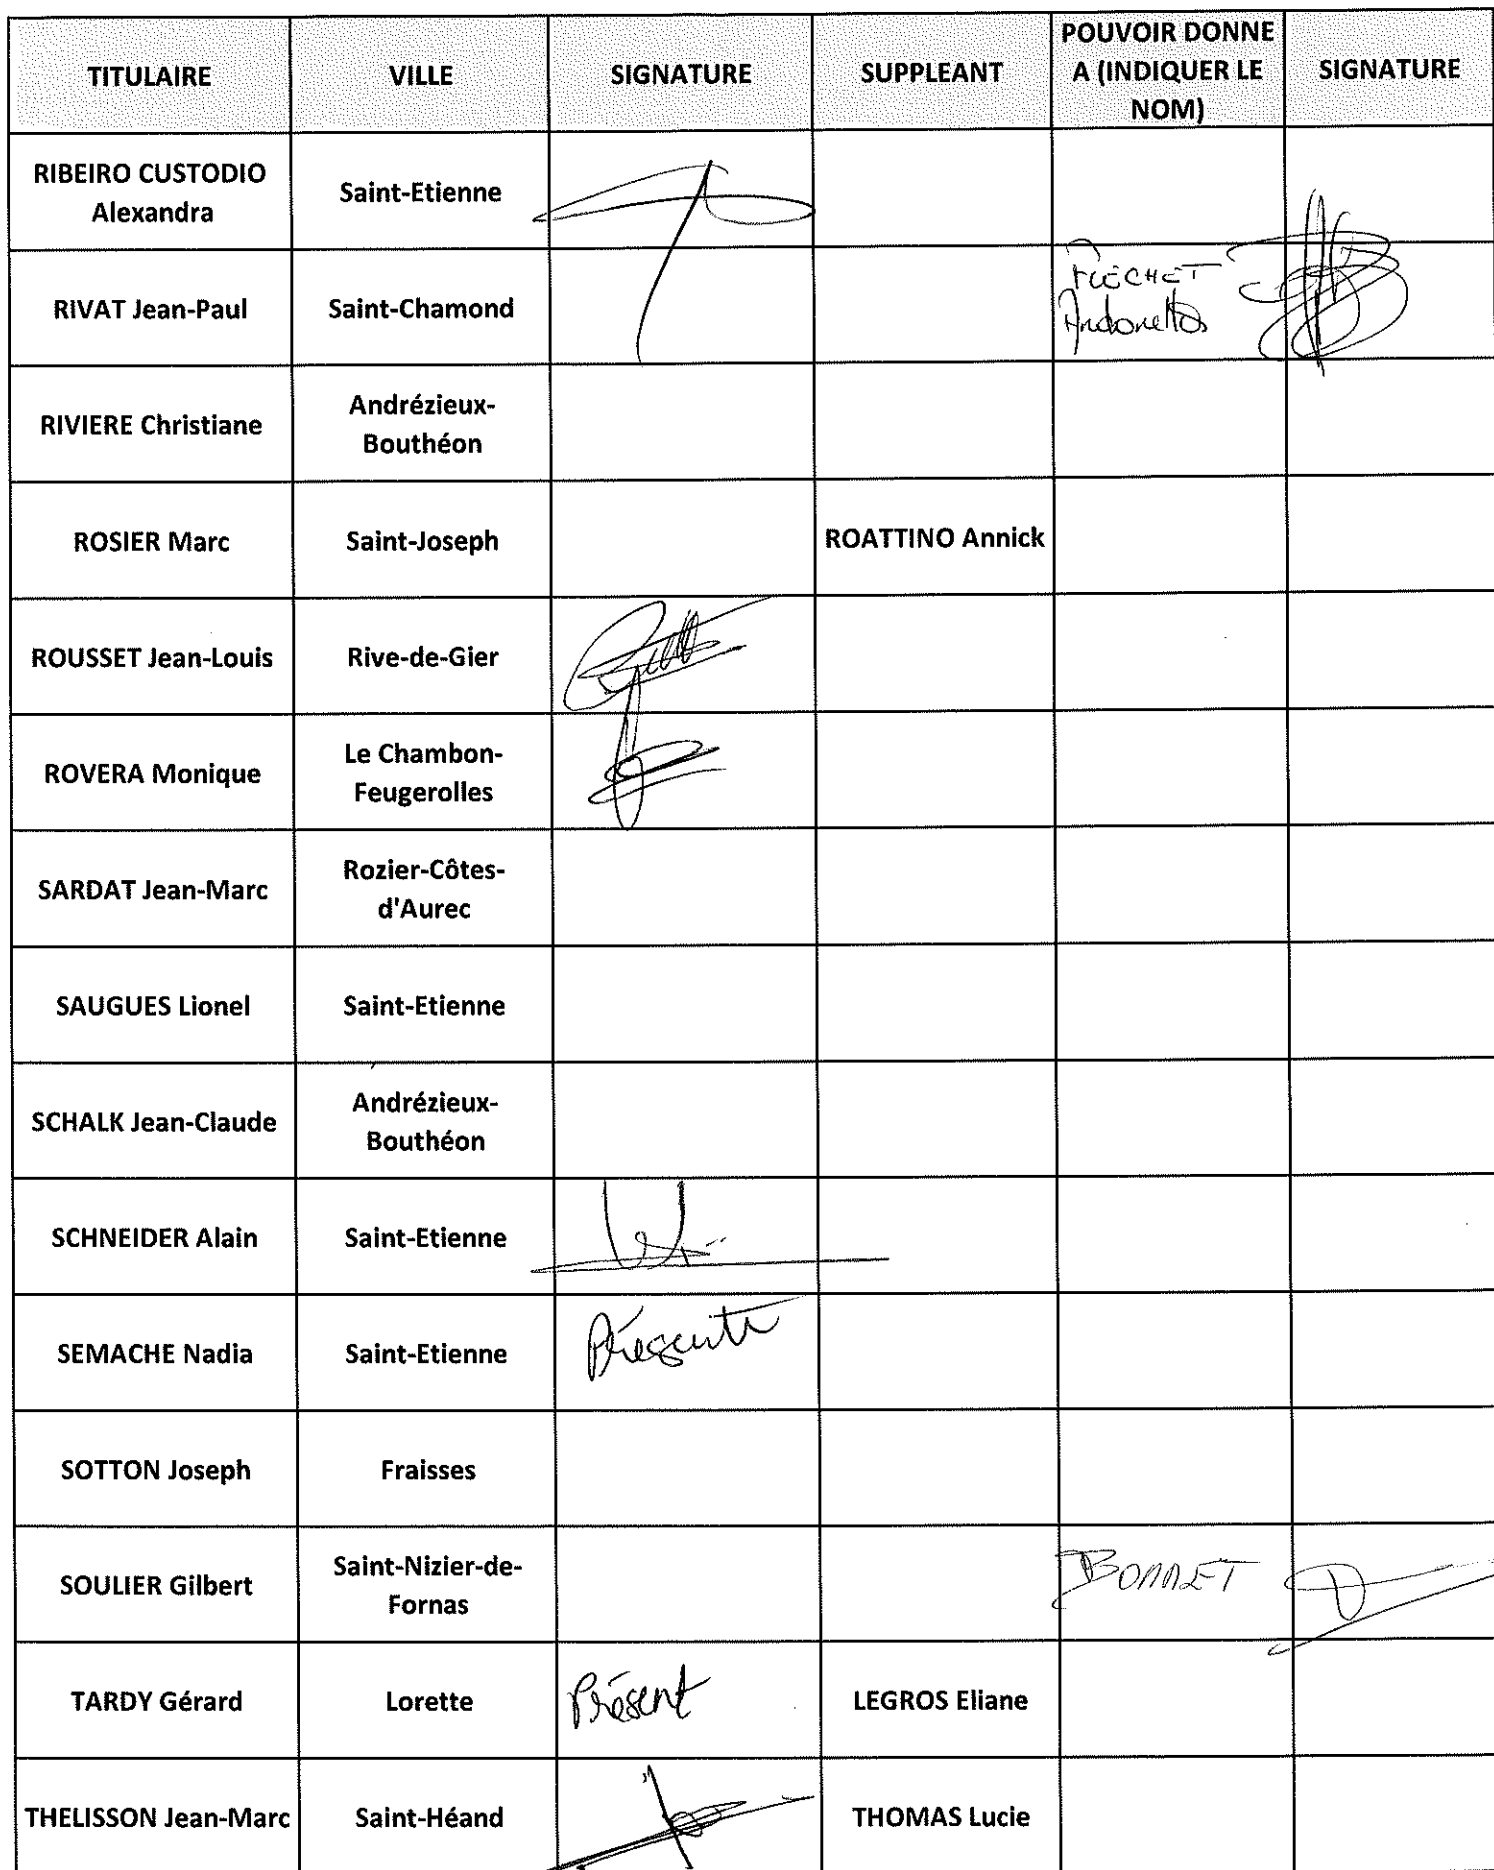 TITULAIRE
VILLE
SIGNATURE
SUPPLEANT
POUVOIR DONNE
A (INDIQUER LE
NOM)
SIGNATURE
RIBEIRO CUSTODIO
Alexandra
Saint-Etienne
RIVAT Jean-Paul
Saint-Chamond
FLECHET
RIVIERE Christiane
Andrézieux-
Bouthéon
ROSIER Marc
Saint-Joseph
ROATTINO Annick
ROUSSET Jean-Louis
Rive-de-Gier
ROVERA Monique
Le Chambon-
Feugerolles
SARDAT Jean-Marc
Rozier-Côtes-
d'Aurec
SAUGUES Lionel
Saint-Etienne
SCHALK Jean-Claude
Andrézieux-
Bouthéon
SCHNEIDER Alain
Saint-Etienne
SEMACHE Nadia
Saint-Etienne
Présente
SOTTON Joseph
Fraisses
SOULIER Gilbert
Saint-Nizier-de-
Fornas
BONNET
TARDY Gérard
Lorette
Présent
LEGROS Eliane
THELISSON Jean-Marc
Saint-Héand
THOMAS Lucie